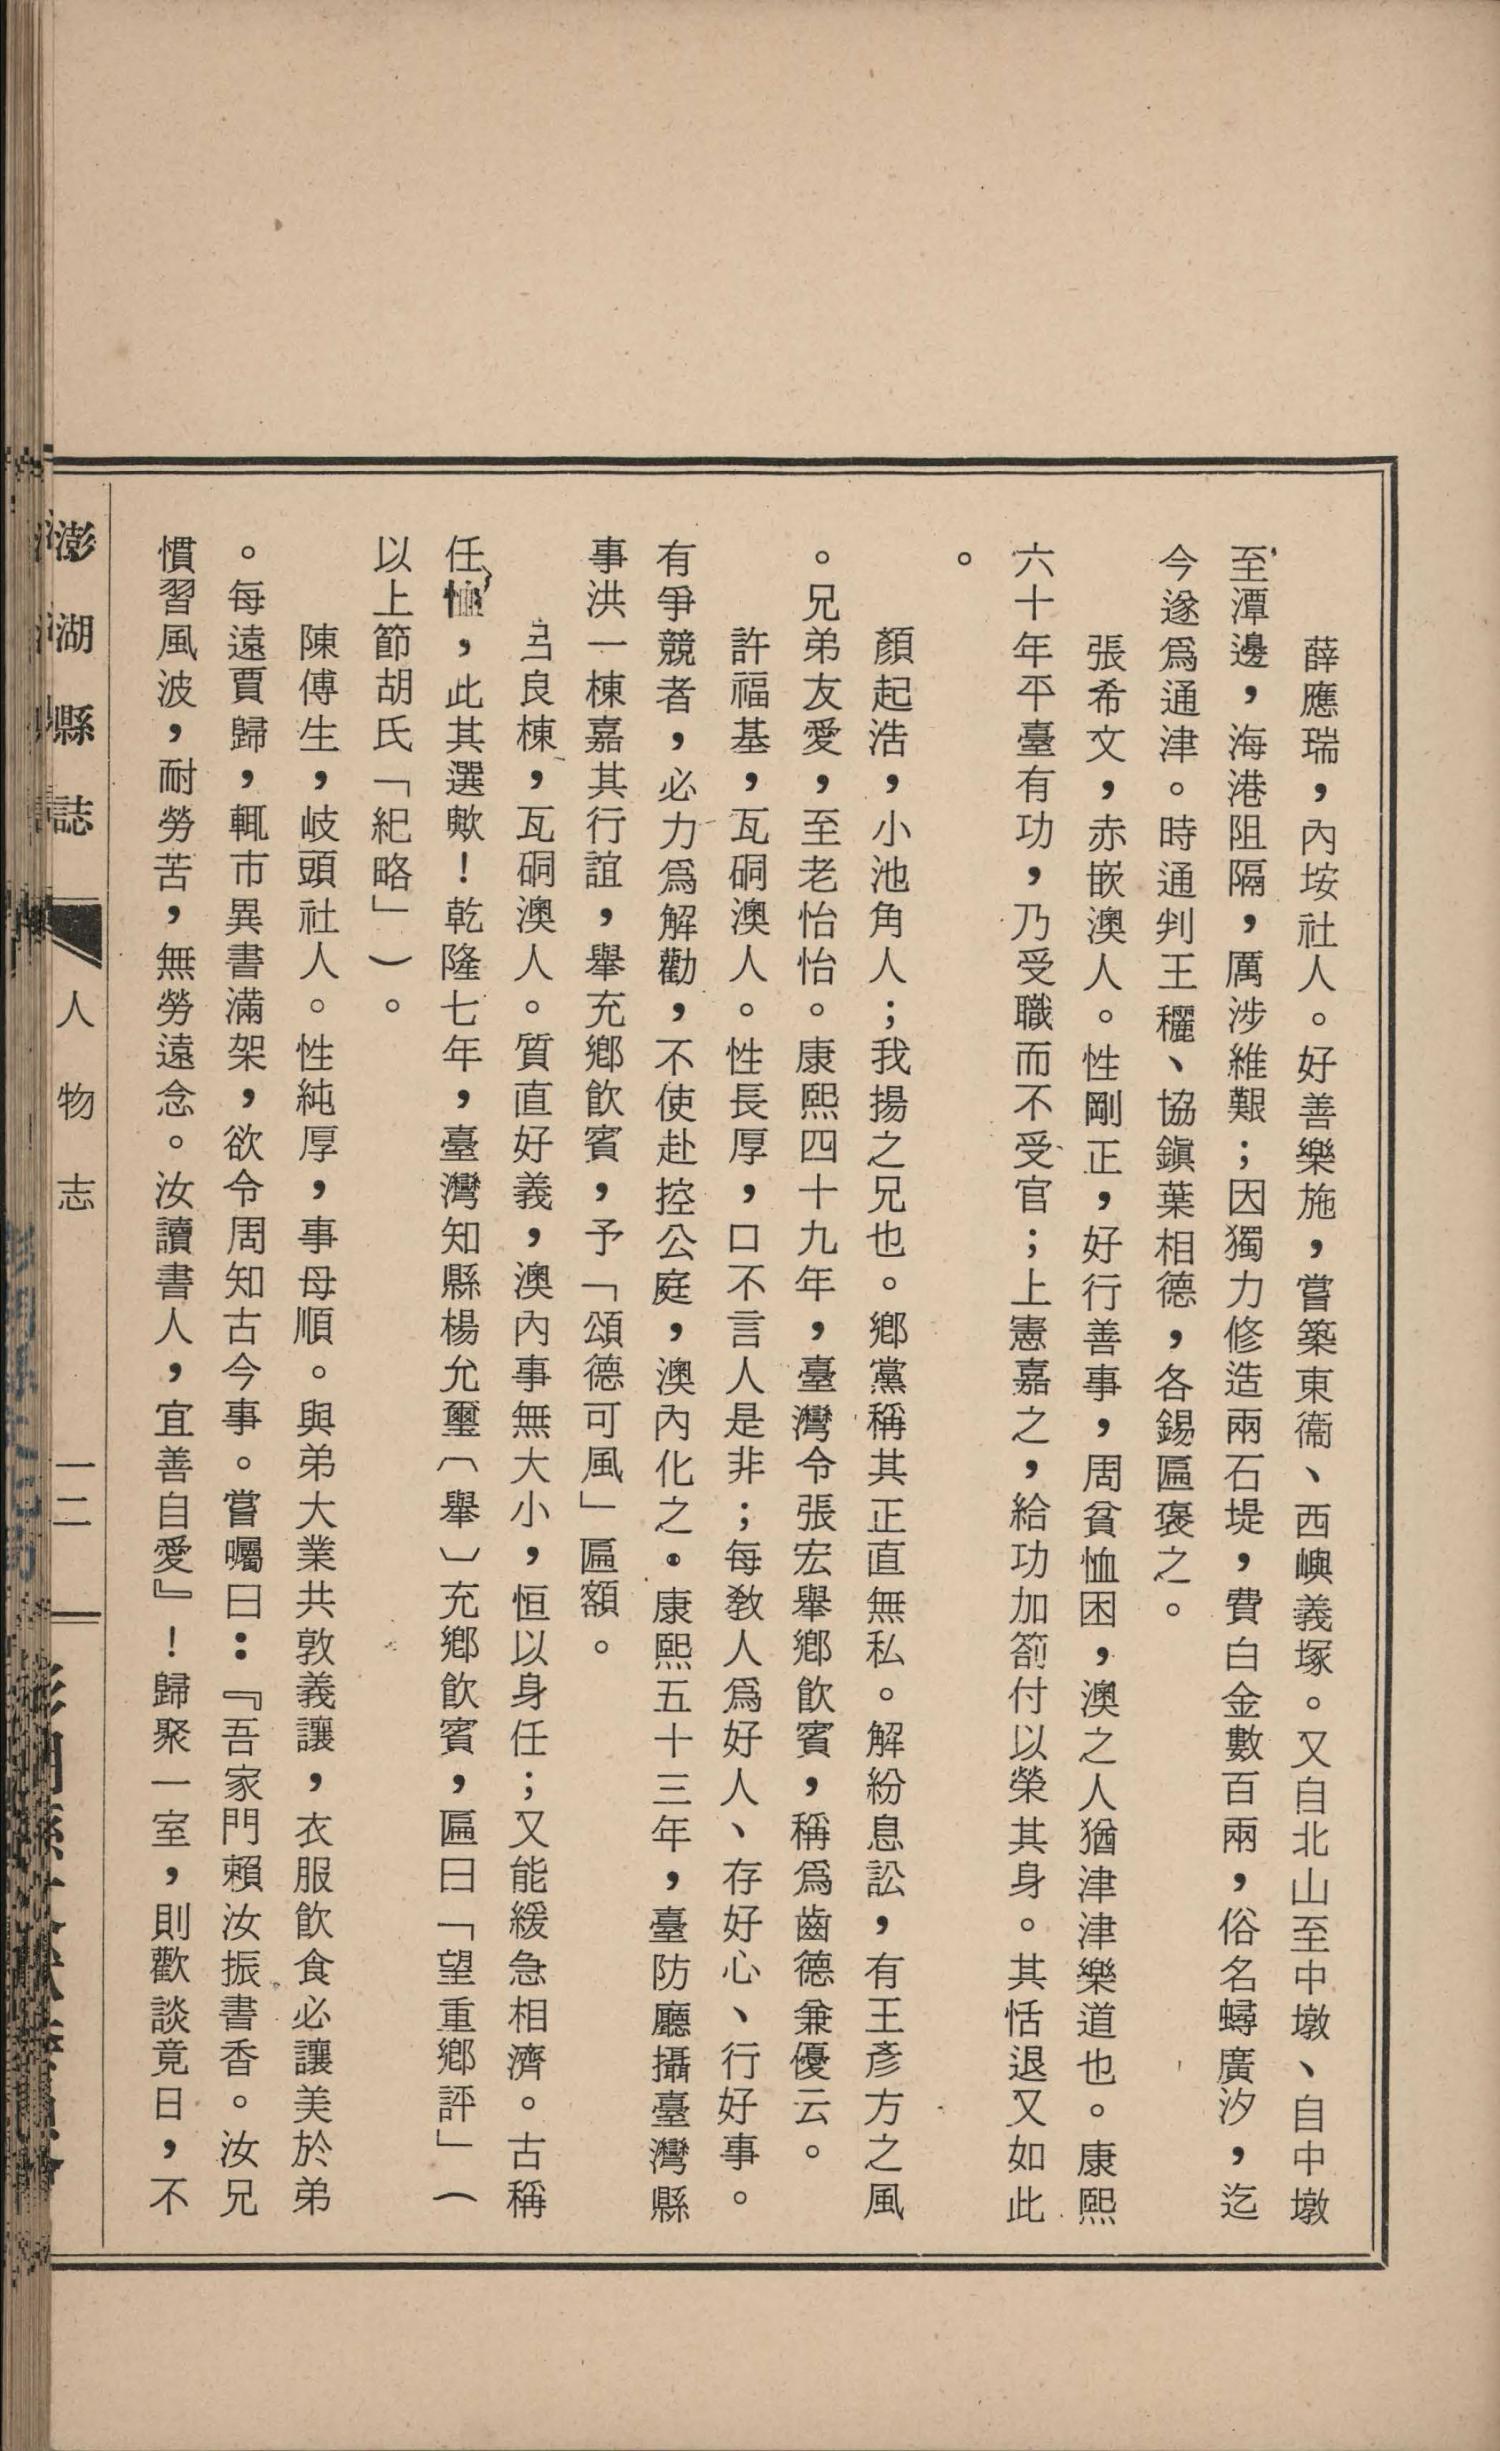 薛應瑞，內垵社人。好善樂施，嘗築東衞、西嶼義塚。又自北山至中墩、自中墩
至潭邊，海港阻隔，厲涉維艱；因獨力修造兩石堤，費白金數百兩，俗名蟳廣汐，迄
今遂爲通津。時通判王䆁、協鎭葉相德，各錫匾褒之。
張希文，赤嵌澳人。性剛正，好行善事，周貧恤困，澳之人猶津津樂道也。康熙
六十年平臺有功，乃受職而不受官；上憲嘉之，給功加箚付以榮其身。其恬退又如此
。
顏起浩，小池角人；我揚之兄也。鄕黨稱其正直無私。解紛息訟，有王彥方之風
。兄弟友愛，至老怡怡。康熙四十九年，臺灣令張宏舉鄕飮賓，稱爲齒德兼優云。
許福基，瓦硐澳人。性長厚，口不言人是非；每敎人爲好人、存好心、行好事。
有爭競者，必力爲解勸，不使赴控公庭，澳內化之。康熙五十三年，臺防廳攝臺灣縣
事洪一棟嘉其行誼，舉充鄕飮賓，予「頌德可風」匾額。
良棟，瓦硐澳人。質直好義，澳內事無大小，恒以身任；又能緩急相濟。古稱
任恤，此其選歟！乾隆七年，臺灣知縣楊允璽〔舉〕充鄕飮賓，匾曰「望重鄕評」（
以上節胡氏「紀略」）。
陳傅生，岐頭社人。性純厚，事母順。與弟大業共敦義讓，衣服飮食必讓美於弟
。每遠賈歸，輒市異書滿架，欲令周知古今事。嘗囑曰：『吾家門賴汝振書香。汝兄
慣習風波，耐勞苦，無勞遠念。汝讀書人，宜善自愛』！歸聚一室，則歡談竟日，不
澎湖縣誌 人物志 一二